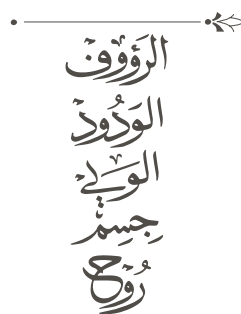 الرَؤووف
الوَدُود
الوَلي
جِسِم
رُوْح